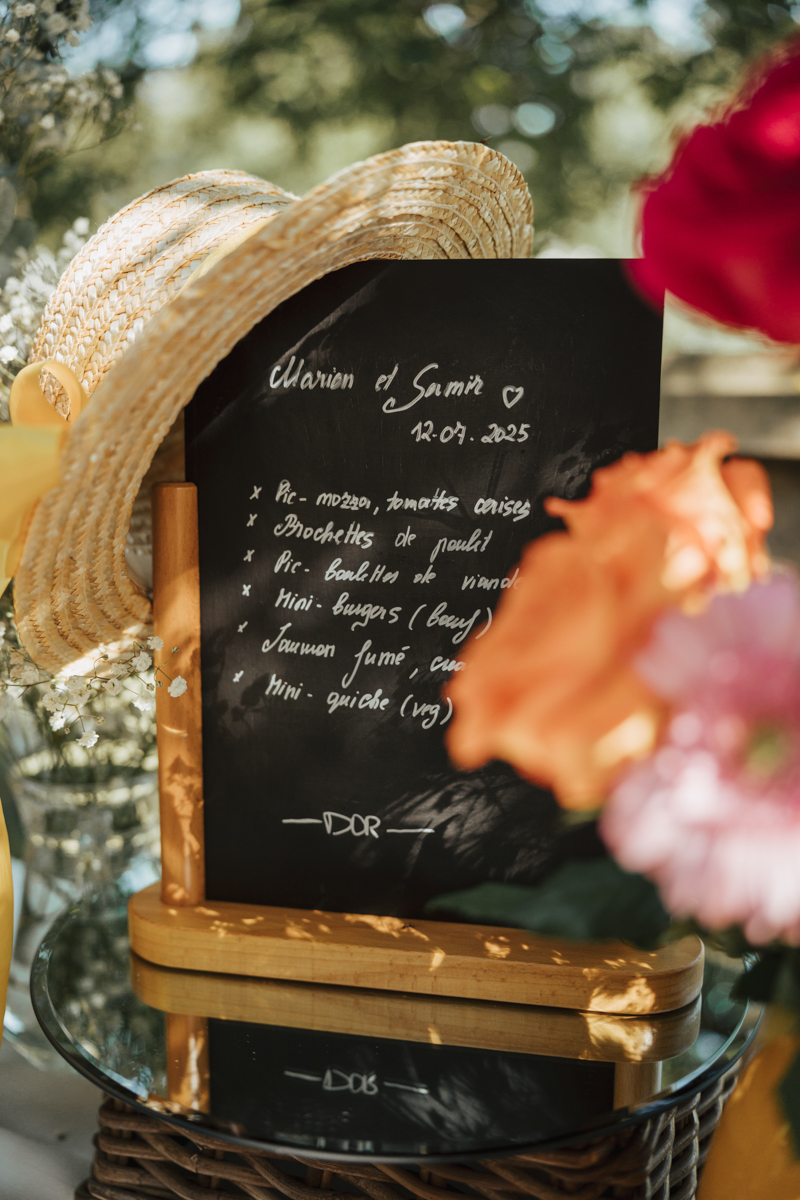 Marion et Samir ♡
12.07.2025
x Pic- mozza, tomattes cerises
x Brochettes de poulet
x Pic- boulettes de viande
x Mini- burgers (bœuf)
x Saumon fumé,
x Mini- quiche (veg)
—DOR—